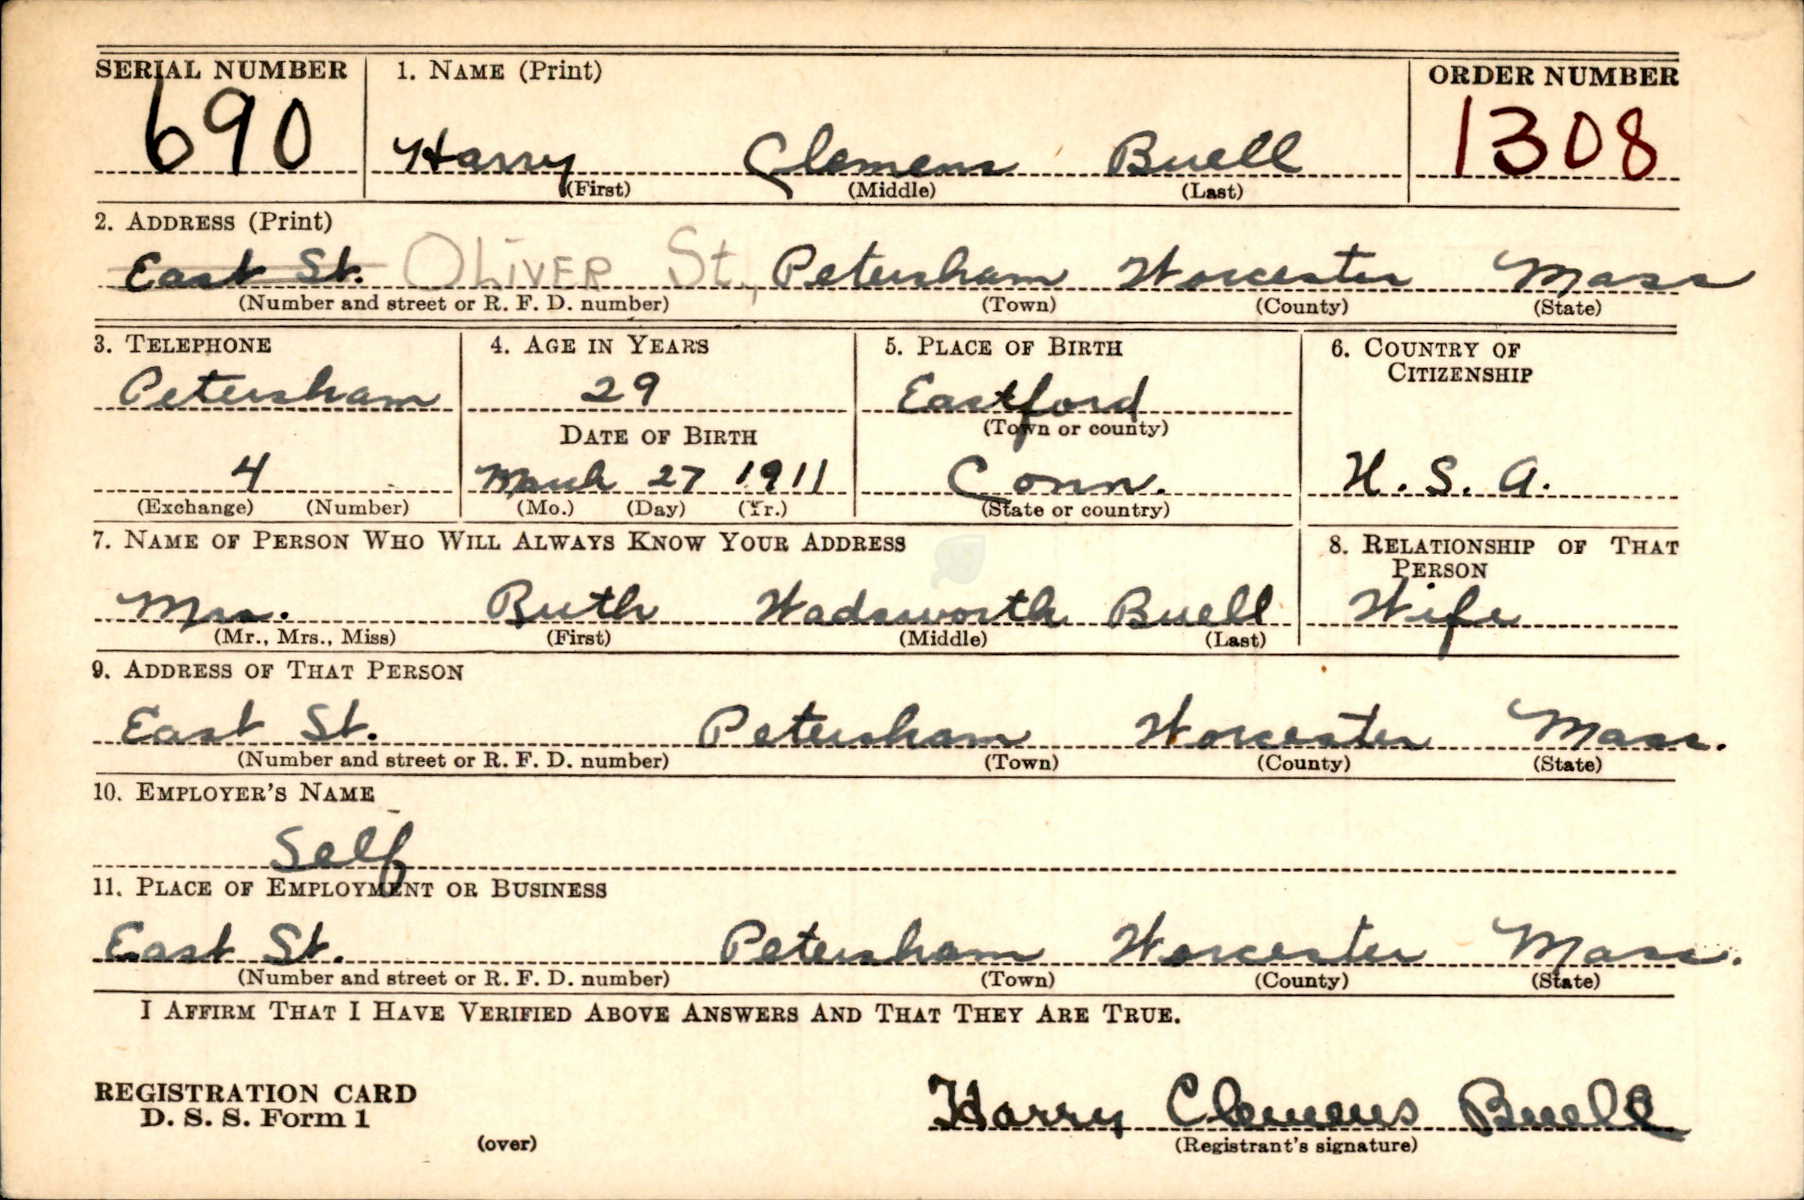 SERIAL NUMBER 1. NAME (Print) ORDER NUMBER
690 Harry Clemens Buell 1308
(First) (Middle) (Last)
2. ADDRESS (Print)
East St. OLIVER St., Petersham Worcester Mass
(Number and street or R. F. D. number) (Town) (County) (State)
3. TELEPHONE 4. AGE IN YEARS 5. PLACE OF BIRTH 6. COUNTRY OF
CITIZENSHIP
Petersham 29 Eastford
DATE OF BIRTH (Town or county)
4 March 27 1911 Conn. U. S. A.
(Exchange) (Number) (Mo.) (Day) (Yr.) (State or country)
7. NAME OF PERSON WHO WILL ALWAYS KNOW YOUR ADDRESS 8. RELATIONSHIP OF THAT
PERSON
Mrs. Ruth Wadsworth Buell Wife
(Mr., Mrs., Miss) (First) (Middle) (Last)
9. ADDRESS OF THAT PERSON
East St. Petersham Worcester Mass.
(Number and street or R. F. D. number) (Town) (County) (State)
10. EMPLOYER'S NAME
Self
11. PLACE OF EMPLOYMENT OR BUSINESS
East St. Petersham Worcester Mass.
(Number and street or R. F. D. number) (Town) (County) (State)
I AFFIRM THAT I HAVE VERIFIED ABOVE ANSWERS AND THAT THEY ARE TRUE.
REGISTRATION CARD
D. S. S. Form 1 Harry Clemens Buell
(over) (Registrant's signature)